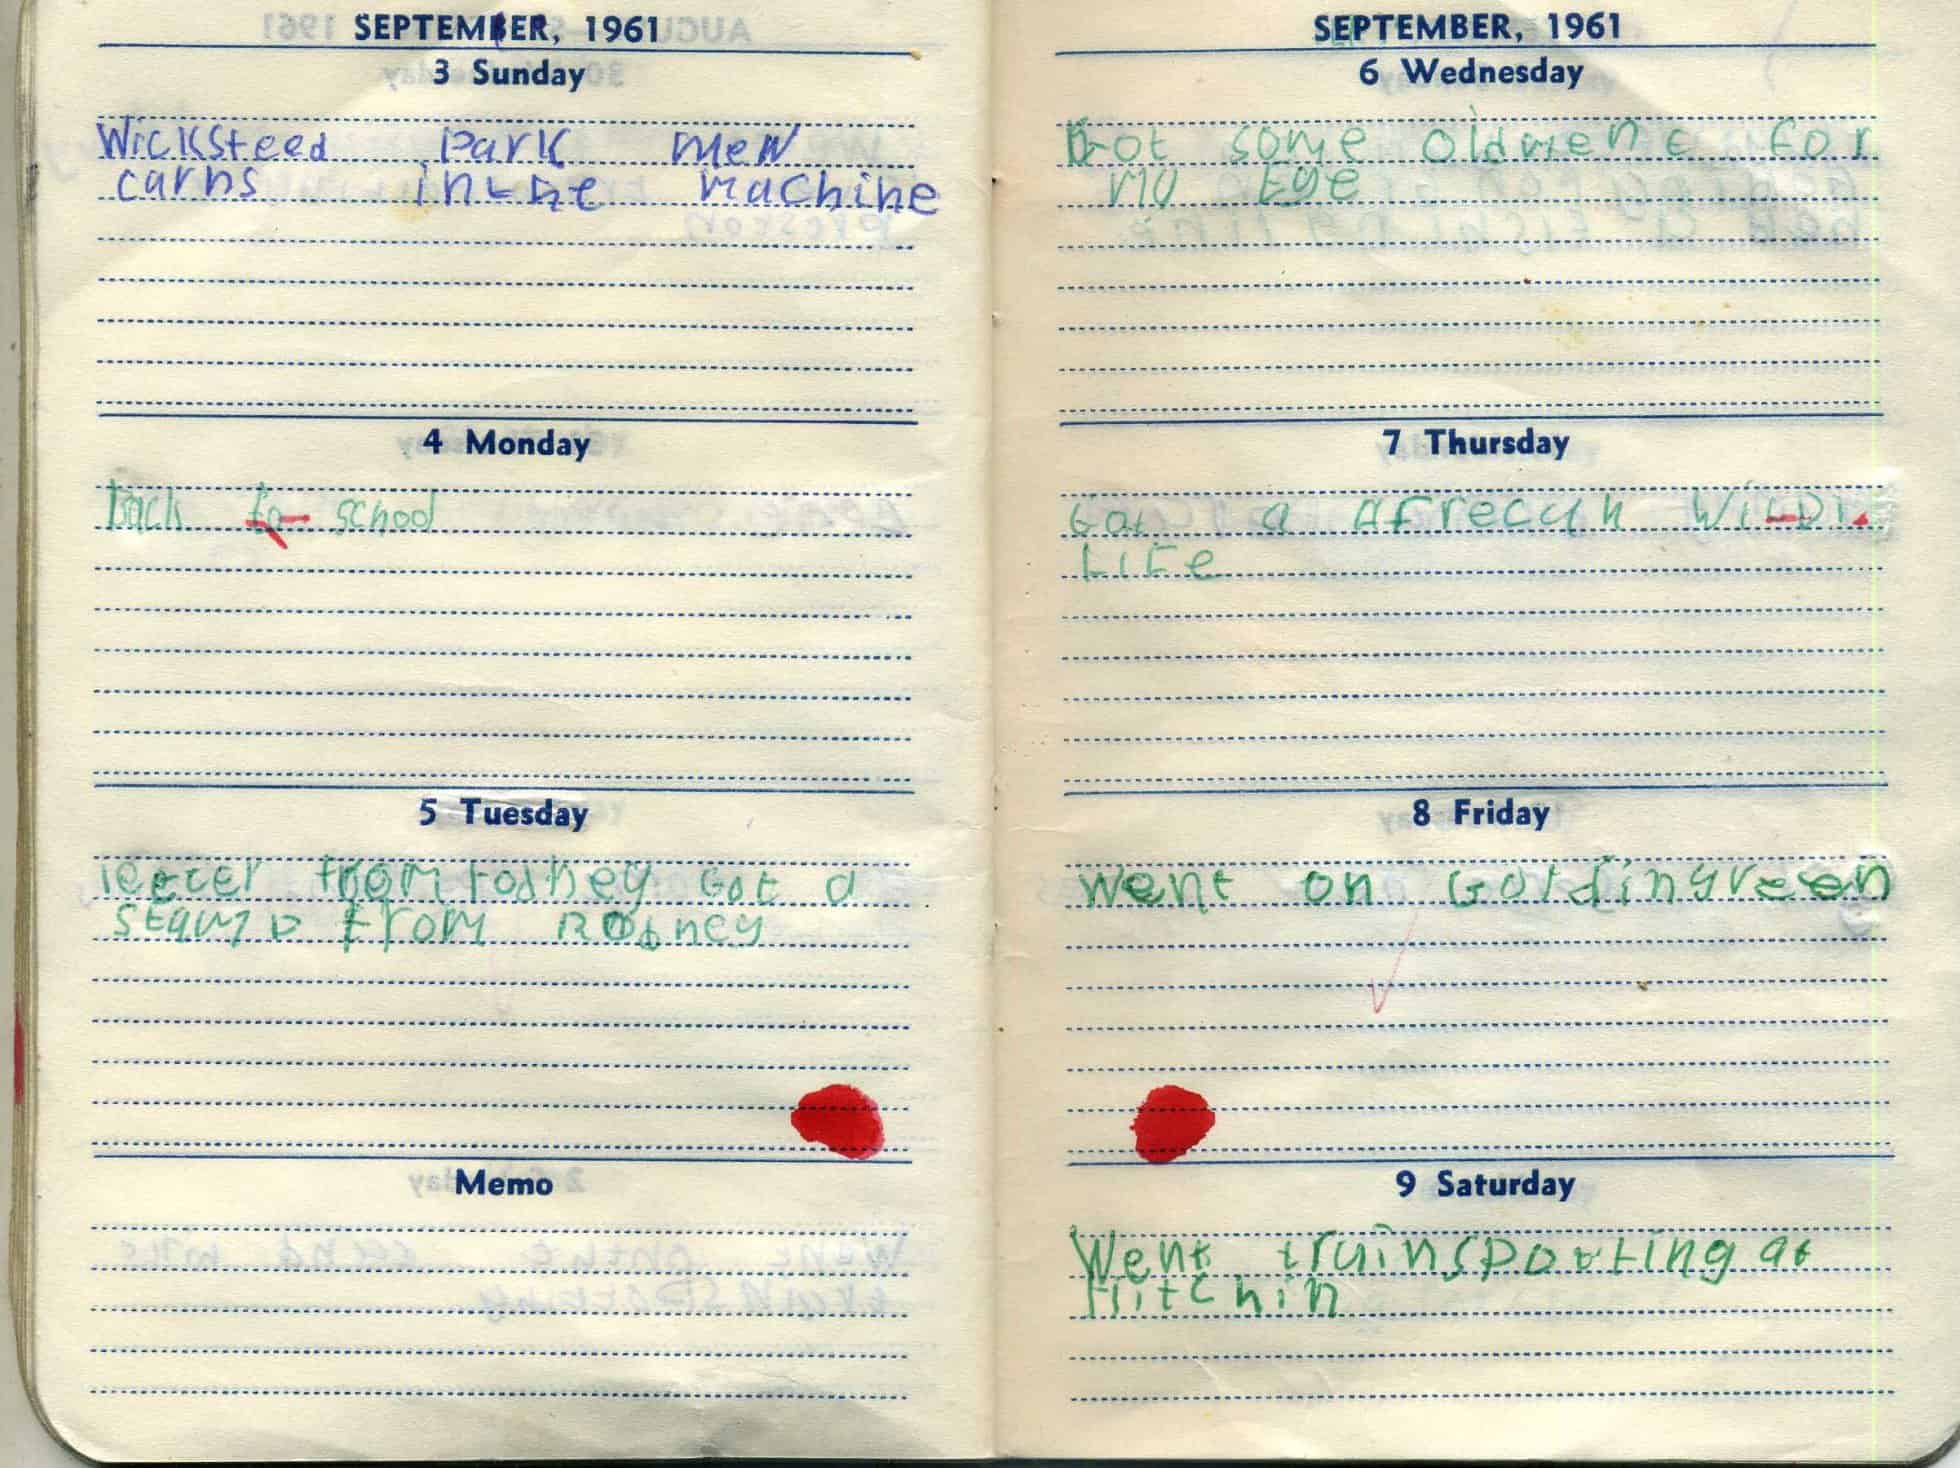 SEPTEMBER, 1961
3 Sunday
Wicksteed Park mew
carns in the machine
4 Monday
back to school
5 Tuesday
letter from rodney Got a
stamp from Rodney
Memo
SEPTEMBER, 1961
6 Wednesday
Got some oldmenc for
my Eye
7 Thursday
Got a Afrecun Wild
LIFe
8 Friday
Went on Goldingreen
9 Saturday
Went truinspotting at
Hitchin